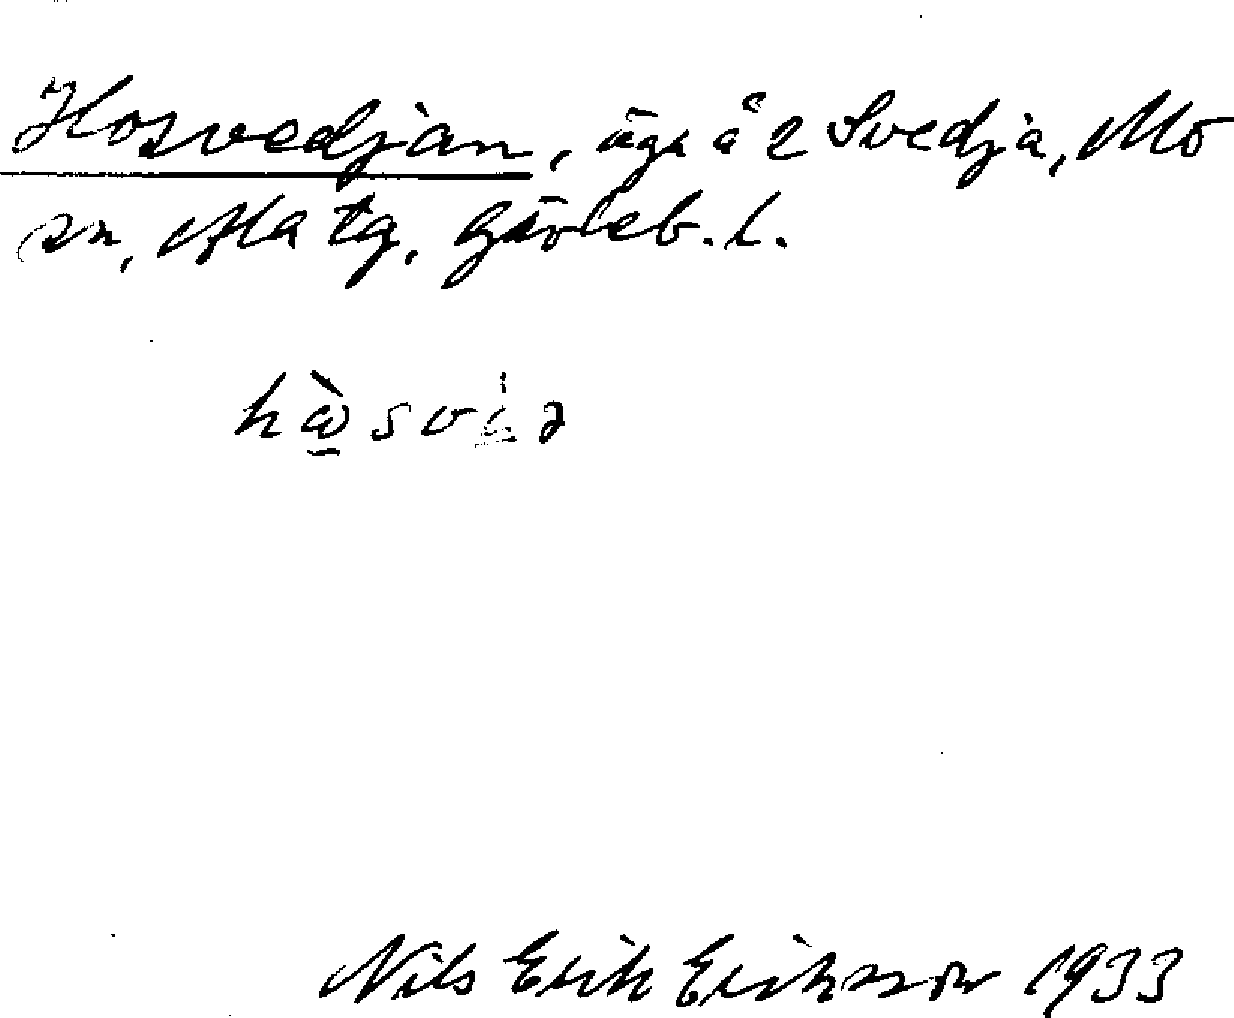 Hosvedjan, äga å 2 Svedja, Mo
sn, Ala tg, Gävleb. l.
Nils Erik Eriksson 1933